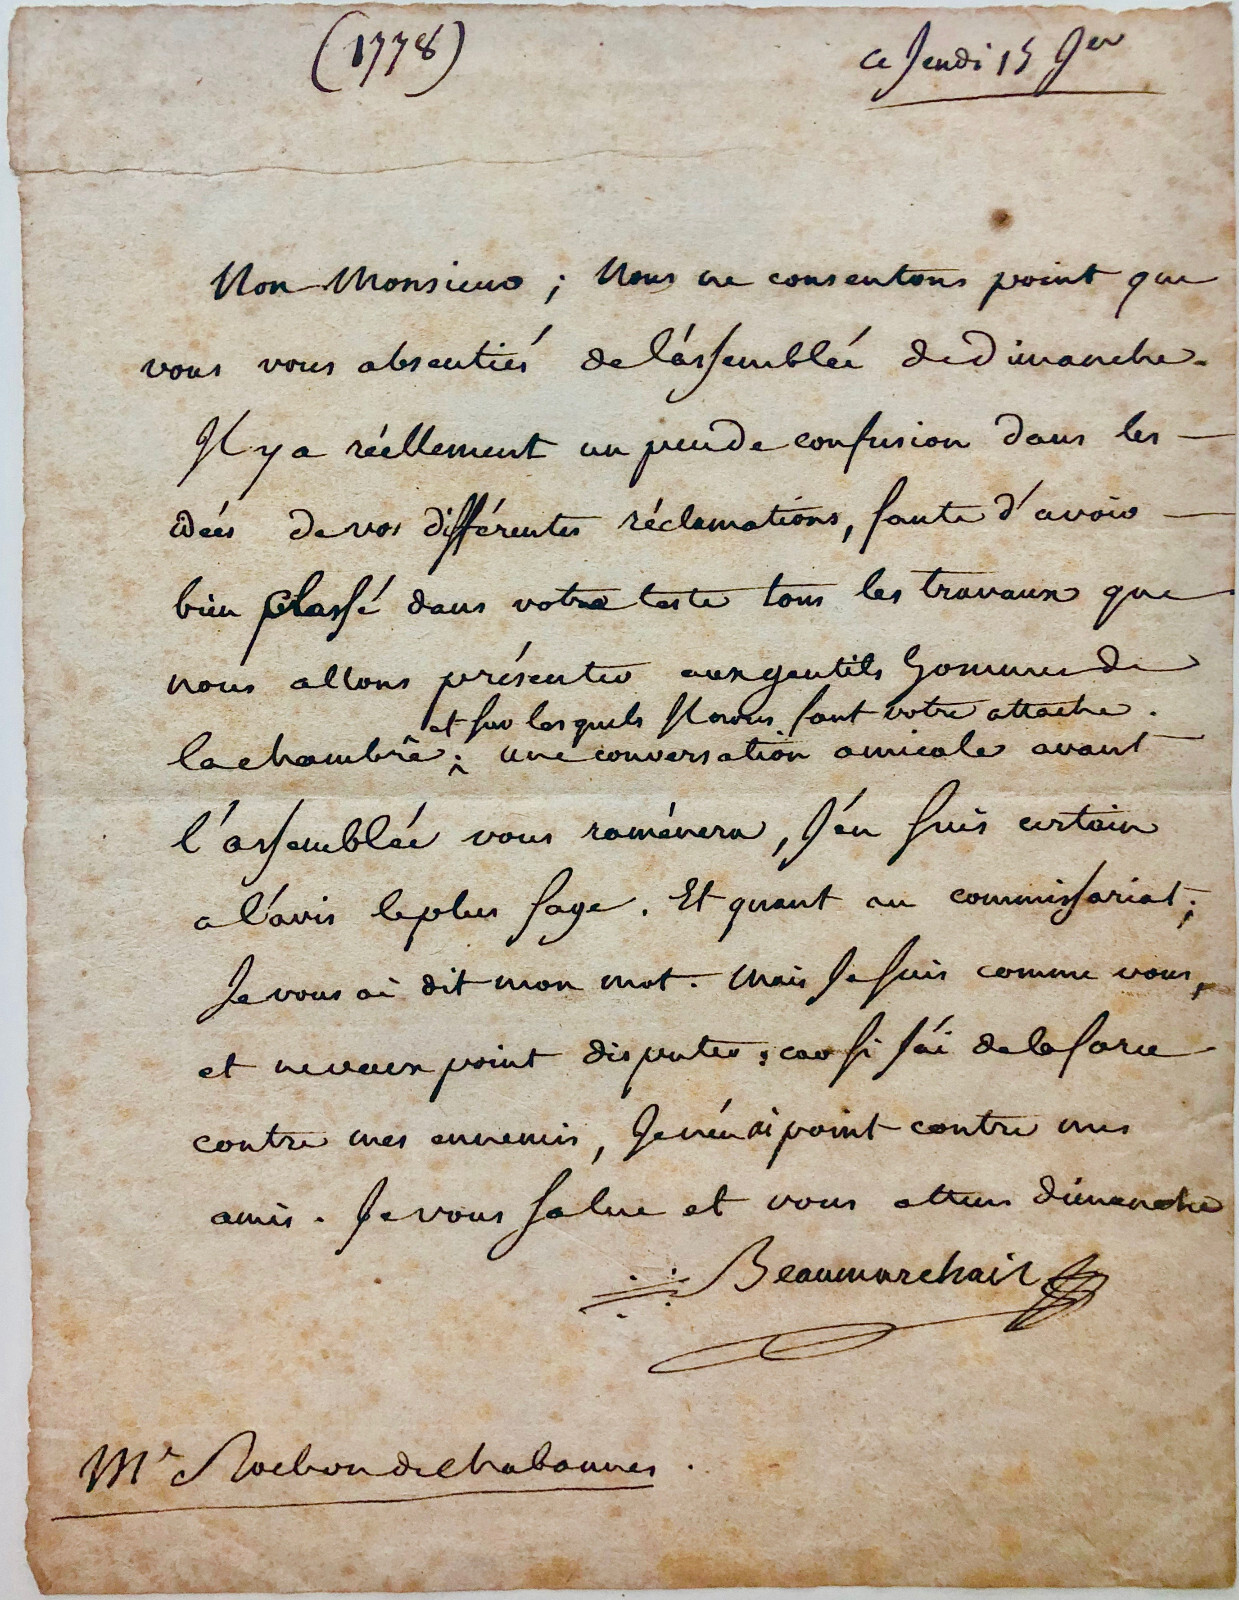 (1778)
ce Jeudi 15 Jer
Non Monsieur ; Nous ne consentons point que
vous vous absentiés de l'assemblée de Dimanche.
Il y a réellement un peu de confusion dans les
idées de vos différentes réclamations, faute d'avoir
bien classé dans votre teste tous les travaux que
nous allons présenter aux gentils hommes de
et sur lesquels Il nous faut votre attache.
la chambre ; une conversation amicale avant
l'assemblée vous raménera, J'en suis certain
a l'avis le plus sage. Et quant au commissariat ;
Je vous ai dit mon mot. Mais Je suis comme vous,
et ne veux point disputer : car si J'ai de la force
contre mes ennemis, Je n'en ai point contre mes
amis. Je vous salue et vous attens dimanche
Beaumarchais
Mr Rochon de Chabannes.